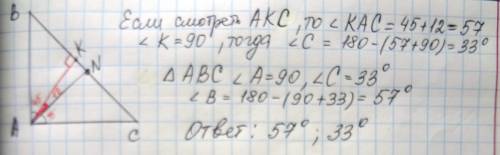 B
K
N
A
C
45
12
45
Если смотреть AKC, то ∠KAC = 45+12 = 57
∠K = 90°, тогда ∠C = 180-(57+90) = 33°
△ABC ∠A = 90, ∠C = 33°
∠B = 180-(90+33) = 57°
Ответ: 57°; 33°